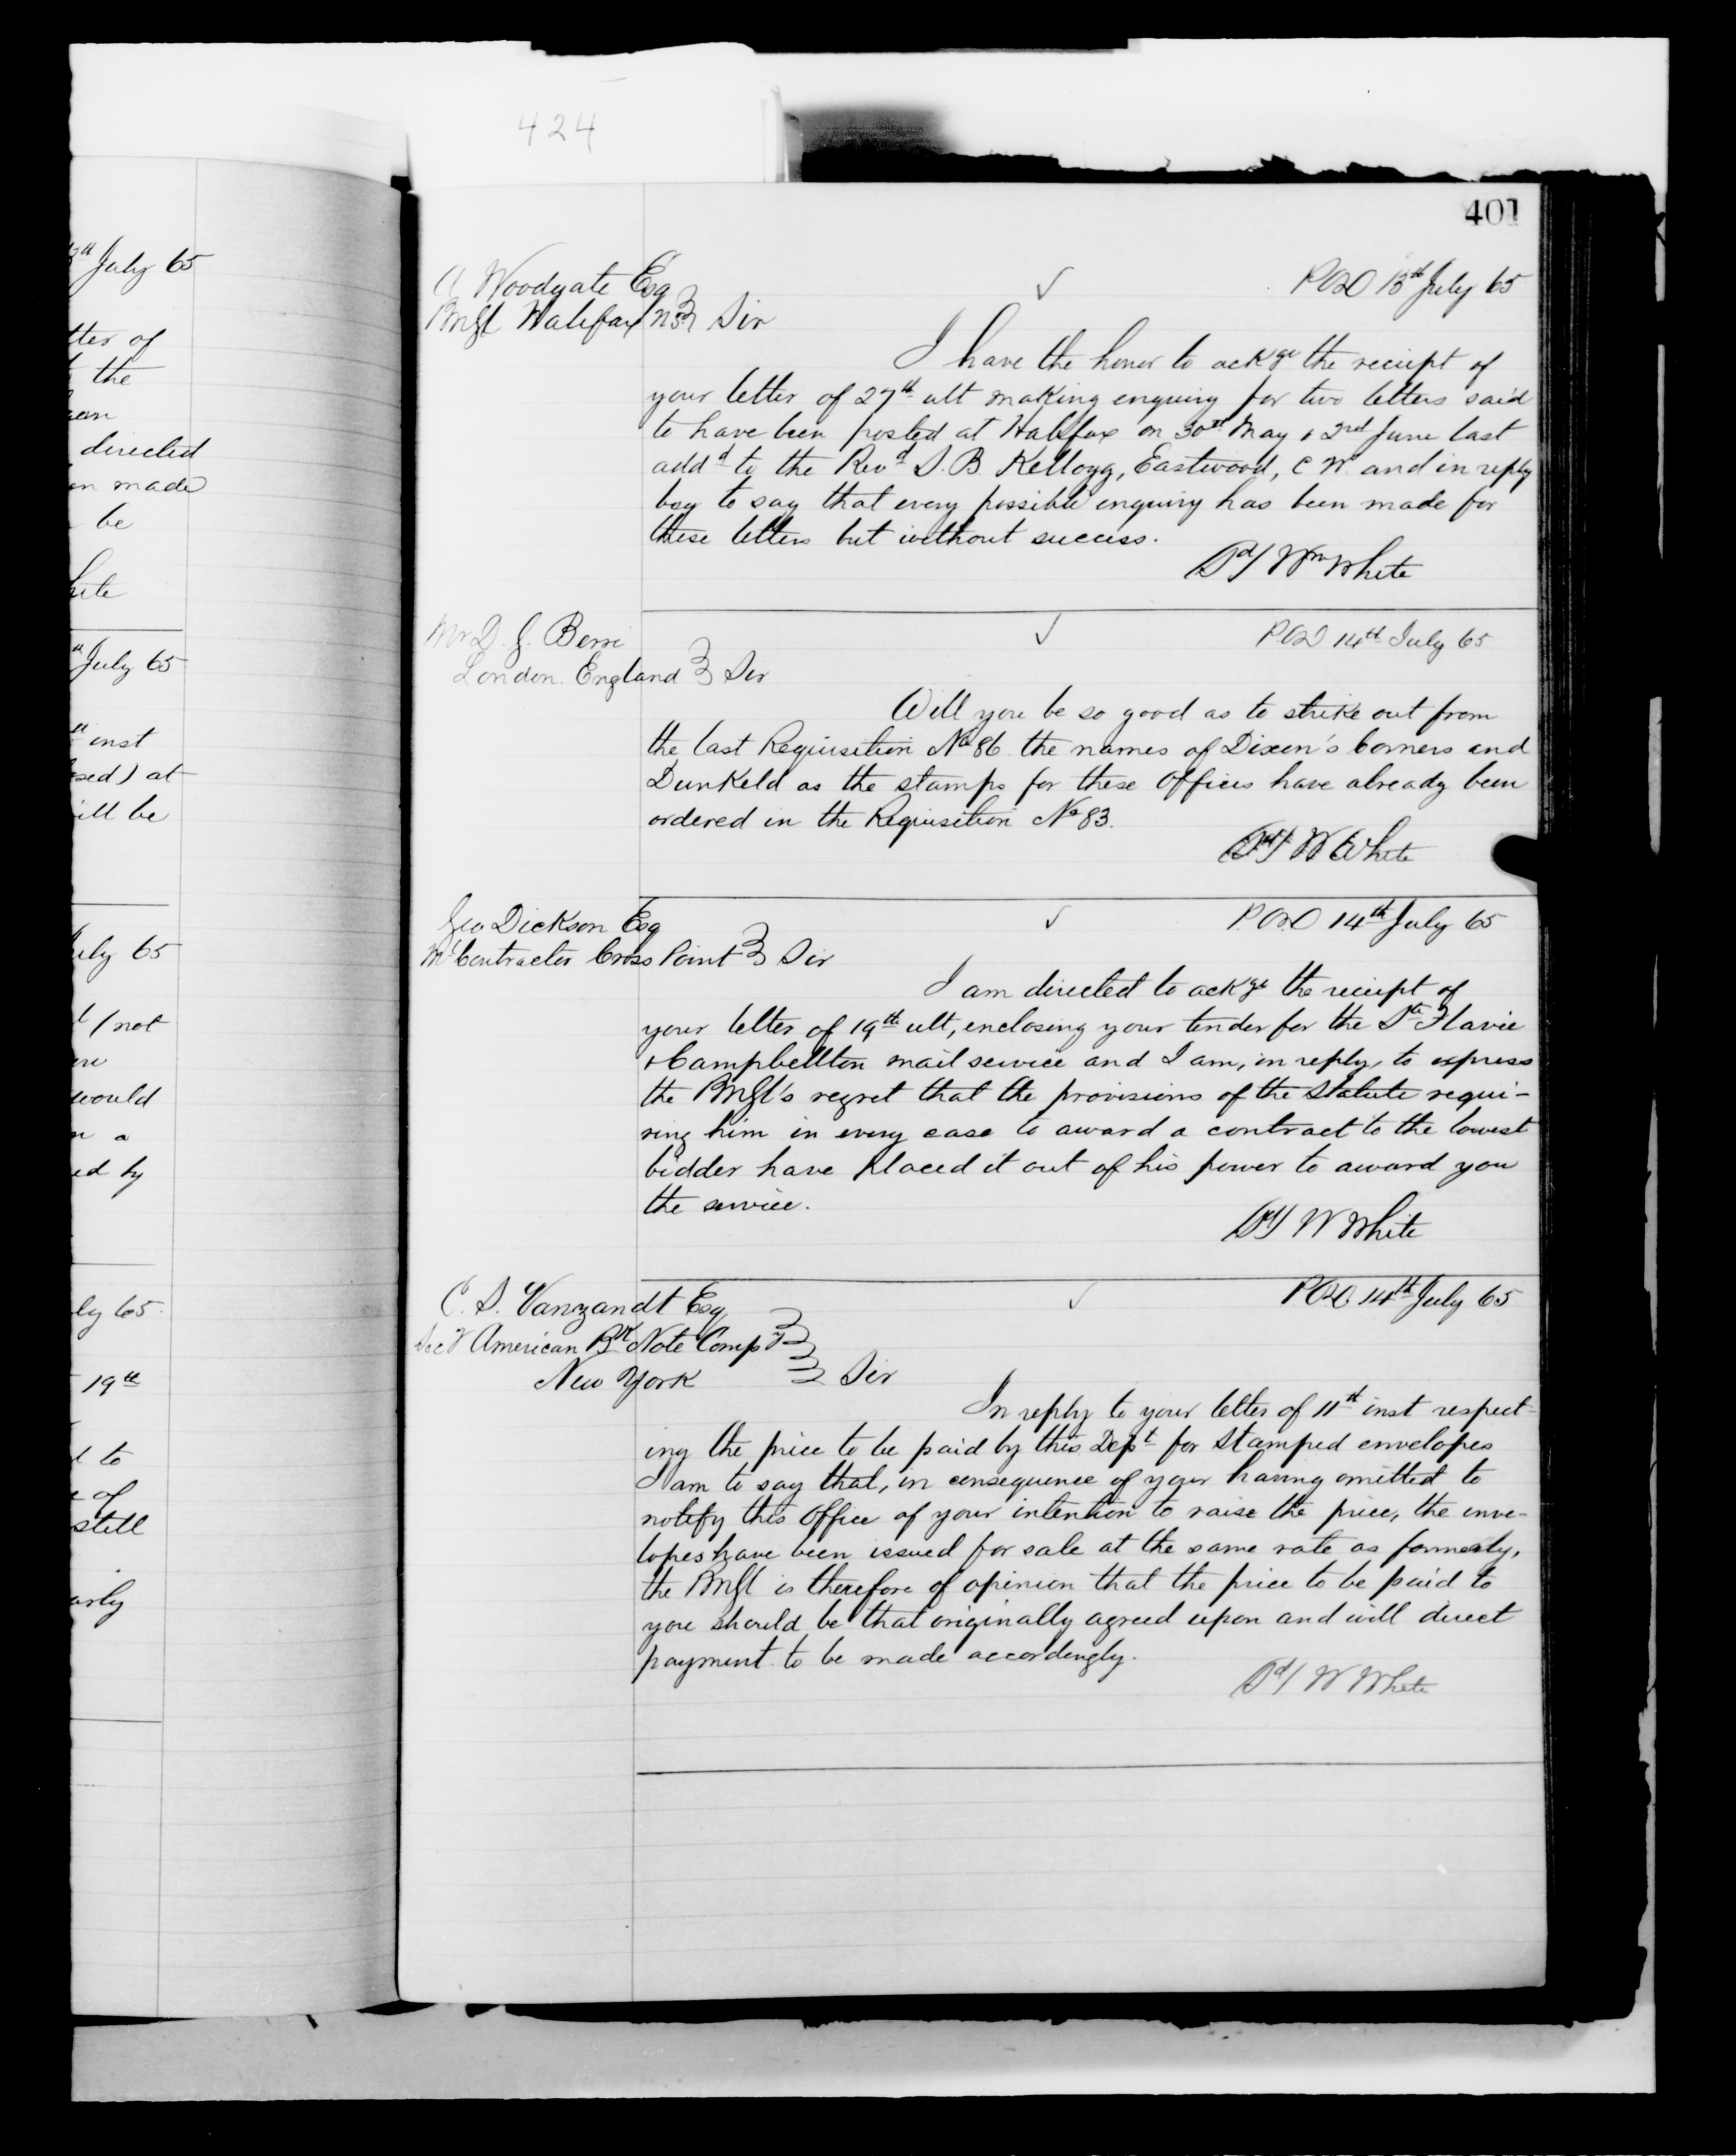 424
401
July 65
tter of
the
directed
en made
be
hite
July 65
inst
sed) at
ill be
uly 65
/ not
would
a
ed by
ly 65
19th
to
of
still
arly
A Woodgate Esq
PMGl Halifax NS Sir
✓
POD 13th July 65
I have the honor to ackge the reciept of
your letter of 27th ult making enquiry for two letters said
to have been posted at Halifax on 30th May & 2nd June last
addd to the Revd S. B Kellogg, Eastwood, C W and in reply
beg to say that every possible enquiry has been made for
these letters but without success.
Sd/ Wm White
Mr D. G. Berri
London. England Sir
✓
POD 14th July 65
Will you be so good as to strike out from
the last Requisition No 86 the names of Dixon's Corners and
Dunkeld as the stamps for these Offices have already been
ordered in the Requisition No 83.
Sd/ W White
Geo Dickson Esq
Ml Contractor Cross Point Sir
✓
POD 14th July 65
I am directed to ackge the reciept of
your letter of 19th ult, enclosing your tender for the Ste Flavie
& Campbellton mail service and I am, in reply, to express
the PMGl's regret that the provisions of the Statute requi-
ring him in every case to award a contract to the lowest
bidder have placed it out of his power to award you
the service.
Sd/ W White
C. S. Vanzandt Esq
Secy American Bk Note Compy
New York Sir
✓
POD 14th July 65
In reply to your letter of 11th inst respect-
ing the price to be paid by this Dept for Stamped envelopes
I am to say that, in consequence of your having omitted to
notify this Office of your intention to raise the price, the enve-
lopes have been issued for sale at the same rate as formerly,
the PMGl is therefore of opinion that the price to be paid to
you should be that originally agreed upon and will direct
payment to be made accordingly.
Sd/ W White